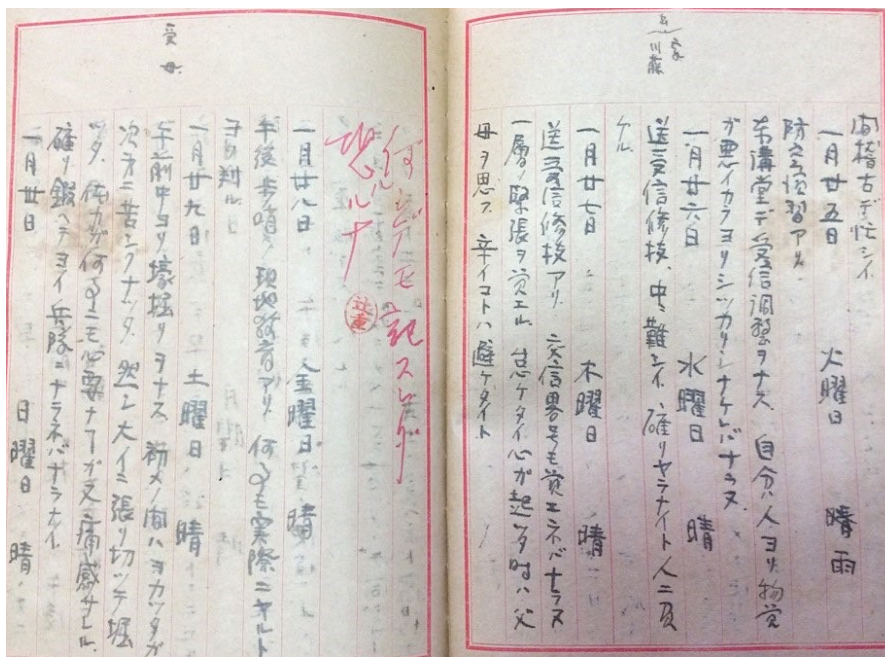 間稽古デ忙シイ
一月廿五日 火曜日 晴雨
防空演習アリ
布講堂デ受信調整ヲナス 自分ハ人ヨリ物覚
ガ悪イカラヨリシッカリシナケレバナラヌ
一月廿六日 水曜日 晴
送受信修技、中々難シイ 確リヤラナイト人ニ負
ケル
一月廿七日 木曜日 晴
送受信修技アリ 交信略号モ覚エネバナラヌ
一層ノ緊張ヲ覚エル 怠ケタイ心ガ起ッタ時ハ父
母ヲ思フ 辛イコトハ避ケタイト
何ンデモ記スルヲ
恐ルナ
辻重
一月廿八日 金曜日 晴
午後歩哨ノ現地教育アリ 何事モ実際ニヤルト
ヨク判ル
一月廿九日 土曜日 晴
午前中ヨリ壕掘リヲナス 初メノ間ハヨカッタガ
次第ニ苦シクナッタ 然シ大イニ張リ切ッテ掘
ッタ 体力ガ何事ニモ必要ナ事ガ又痛感サレル
確リ鍛ヘテヨイ兵隊ニナラネバナラナイ
一月卅日 日曜日 晴
受 母
川藤